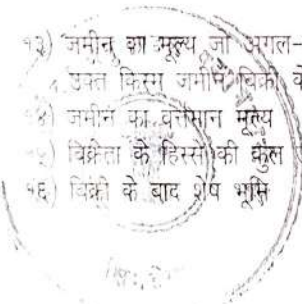 १३) जमीन का मूल्य जो अगल-
उक्त किस्म जमीन बिक्री के
१४) जमीन का वर्त्तमान मूल्य
१५) विक्रेता के हिस्से की कुल
१६) बिक्री के बाद शेष भूमि